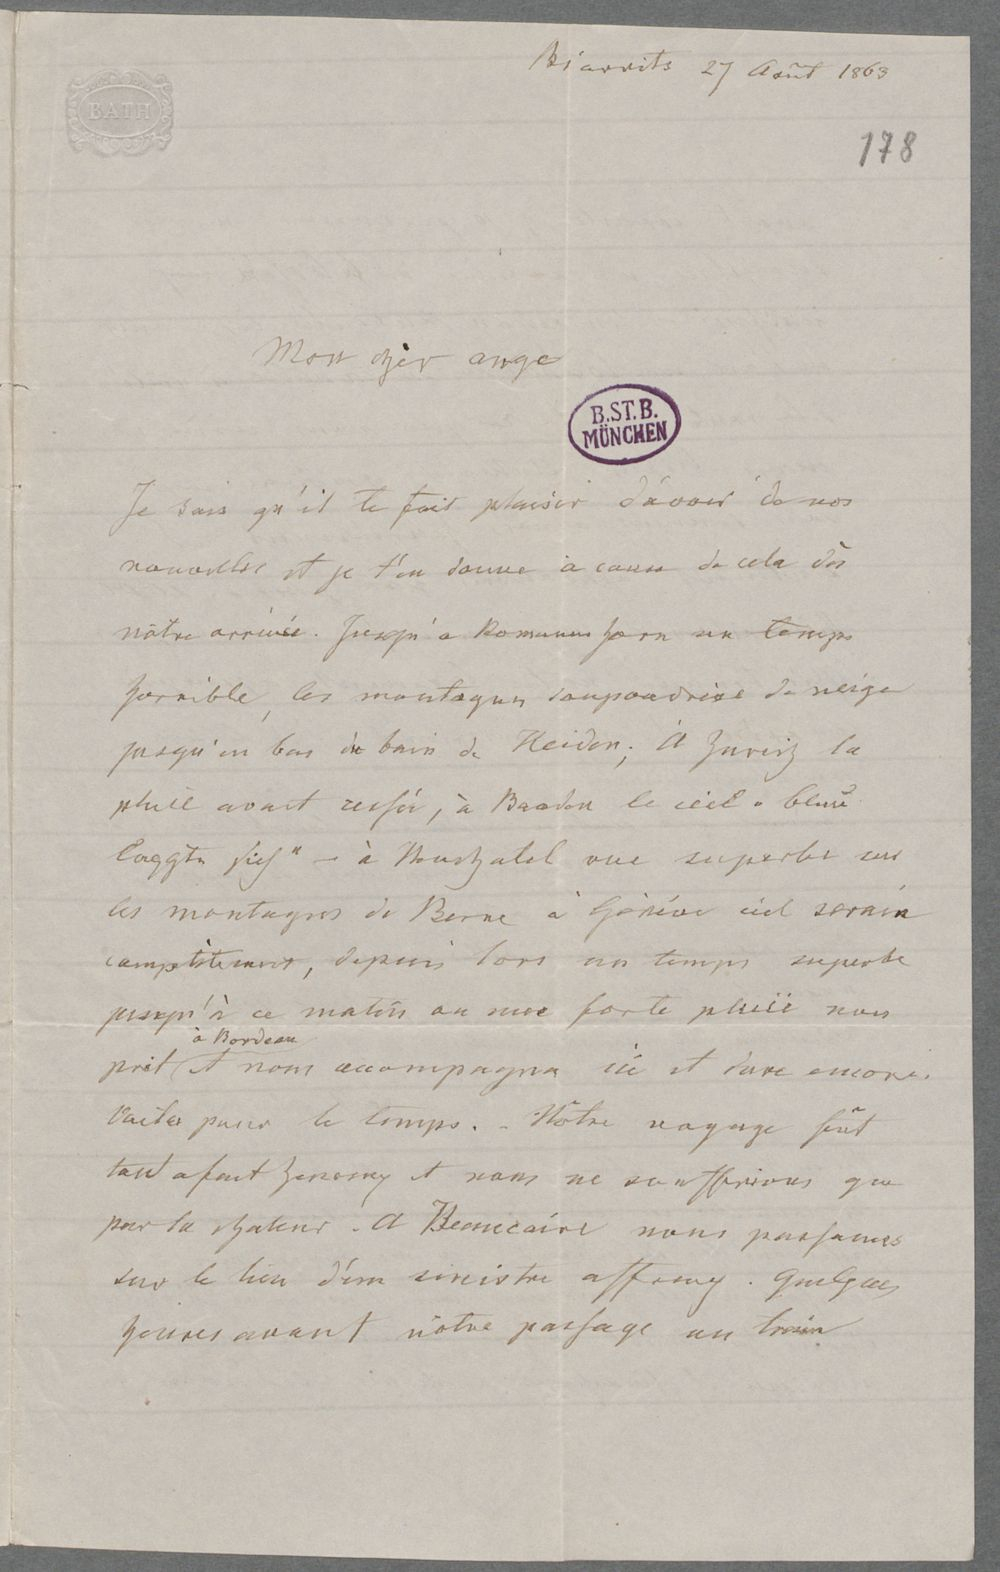 BATH
Biarrits 27 Août 1863
178
Mon cher ange
B.ST.B.
MÜNCHEN
Je sais qu'il te fait plaisir d'avoir de nos
nouvelles et je t'en donne à cause de cela dès
nôtre arrivée. Jusqu'a Romanshorn un temps
horrible, les montagnes saupoudrées de neige
jusqu'en bas de bain de Heiden; A Zurich la
pluie avait cessée, à Baaden le ciel "bleue
 sich" – à Neuchatel vue superbe sur
les montagnes de Berne à Génève ciel serain
complètement, depuis lors un temps superbe
jusqu'à ce matin ou une forte pluië nous
à Bordeau
prit et nous accompagna ici et dure encore.
Voila pour le temps. – Nôtre voyage fût
tout a fait heureux et nous ne souffrirons que
par la chaleur. A Beaucaire nous passames
sur le lieu d'un sinistre affreux. Quelques
heures avant nôtre passage un train